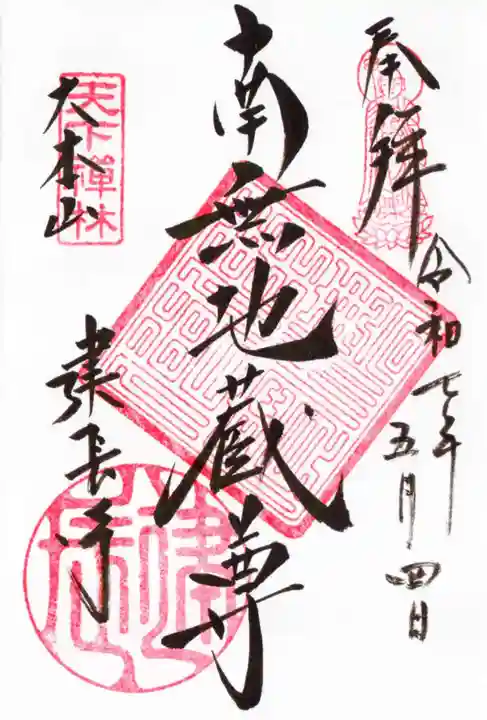 奉拝
令和七年五月四日
南無地蔵尊
大本山
天下禅林
建長寺
建長